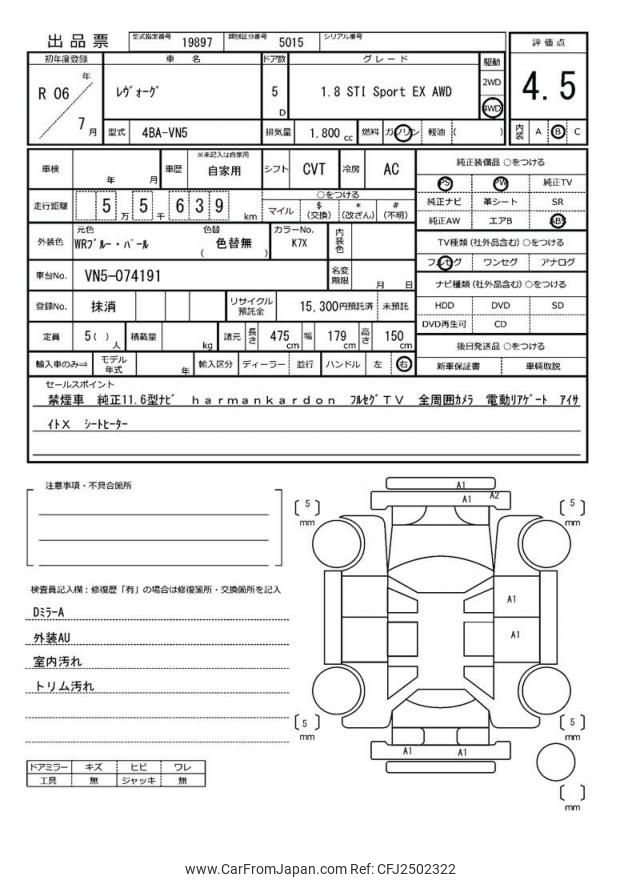 出品票
型式指定番号 19897 類別区分番号 5015 シリアル番号
初年度登録 車 名 ドア数 グレード 駆動 評価点
R 06 年 7 月
ﾚヴｫｰｸﾞ 5 D 1.8 STI Sport EX AWD 2WD 4WD
4.5
型式 4BA-VN5 排気量 1.800 cc 燃料 ガソリン 軽油 ( ) 内装 A B C
車検 年 月 車歴 ※未記入は自家用 自家用 シフト CVT 冷房 AC
純正装備品 ○をつける
PS PW 純正TV
純正ナビ 革シート SR
純正AW エアB ABS
走行距離 5 5 万 千 6 3 9 km
○をつける
マイル $ (交換) * (改ざん) # (不明)
外装色 元色 WRﾌﾞﾙｰ・ﾊﾟｰﾙ 色替 ( 色替無 ) カラーNo. K7X 内装色
TV種類 (社外品含む) ○をつける
フルセグ ワンセグ アナログ
車台No. VN5-074191 名変期限 月 日
ナビ種類 (社外品含む) ○をつける
HDD DVD SD
DVD再生可 CD
登録No. 抹消 リサイクル預託金 15,300円預託済 未預託
定員 5( ) 人 積載量 kg 諸元 長さ 475 cm 幅 179 cm 高さ 150 cm
後日発送品 ○をつける
新車保証書 車輌取説
輸入車のみ⇒ モデル年式 年 輸入区分 ディーラー 並行 ハンドル 左 右
セールスポイント
禁煙車 純正11.6型ﾅﾋﾞ ｈａｒｍａｎｋａｒｄｏｎ ﾌﾙｾｸﾞＴＶ 全周囲ｶﾒﾗ 電動ﾘｱｹﾞｰﾄ ｱｲｻ
ｲﾄX ｼｰﾄﾋｰﾀｰ
注意事項・不具合箇所
検査員記入欄：修復歴「有」の場合は修復箇所・交換箇所を記入
DﾐﾗｰA
外装AU
室内汚れ
トリム汚れ
ドアミラー キズ ヒビ ワレ
工具 無 ジャッキ 無
A1
A1 A2
5 mm
5 mm
A1
A1
5 mm
5 mm
A1 A1
mm
www.CarFromJapan.com Ref: CFJ2502322